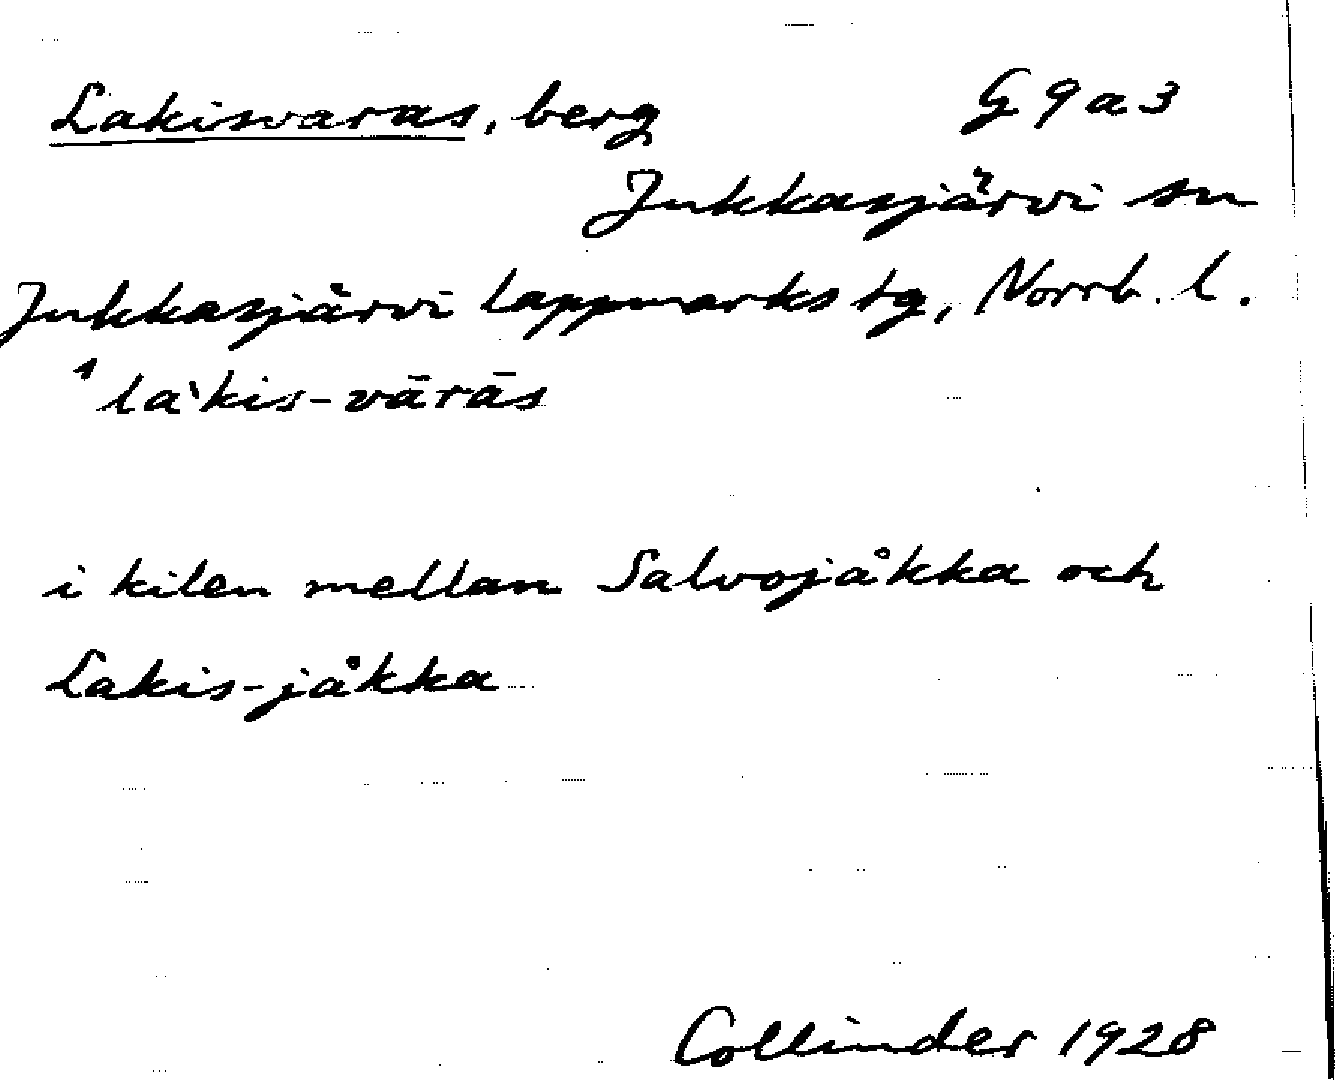 Lakisvaras, berg G 9 a 3
Jukkasjärvi sn
Jukkasjärvi lappmarks tg, Norrb. l.
¹la`kis-vārās
i kilen mellan Salvojåkka och
Lakis-jåkka
Collinder 1928